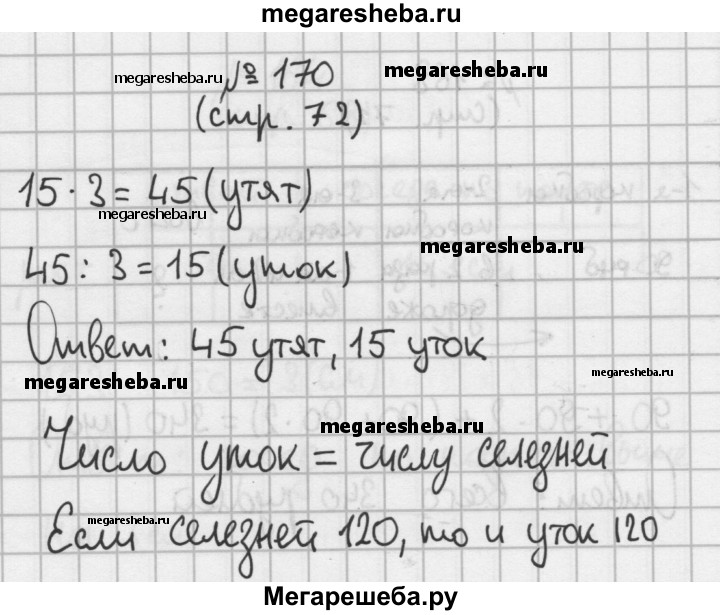 megaresheba.ru
№ 170
megaresheba.ru megaresheba.ru
(стр. 72)
15 · 3 = 45 (утят)
megaresheba.ru
megaresheba.ru
45 : 3 = 15 (уток)
Ответ: 45 утят, 15 уток
megaresheba.ru
megaresheba.ru
megaresheba.ru
Число уток = числу селезней
megaresheba.ru
Если селезней 120, то и уток 120
Мегарешеба.ру